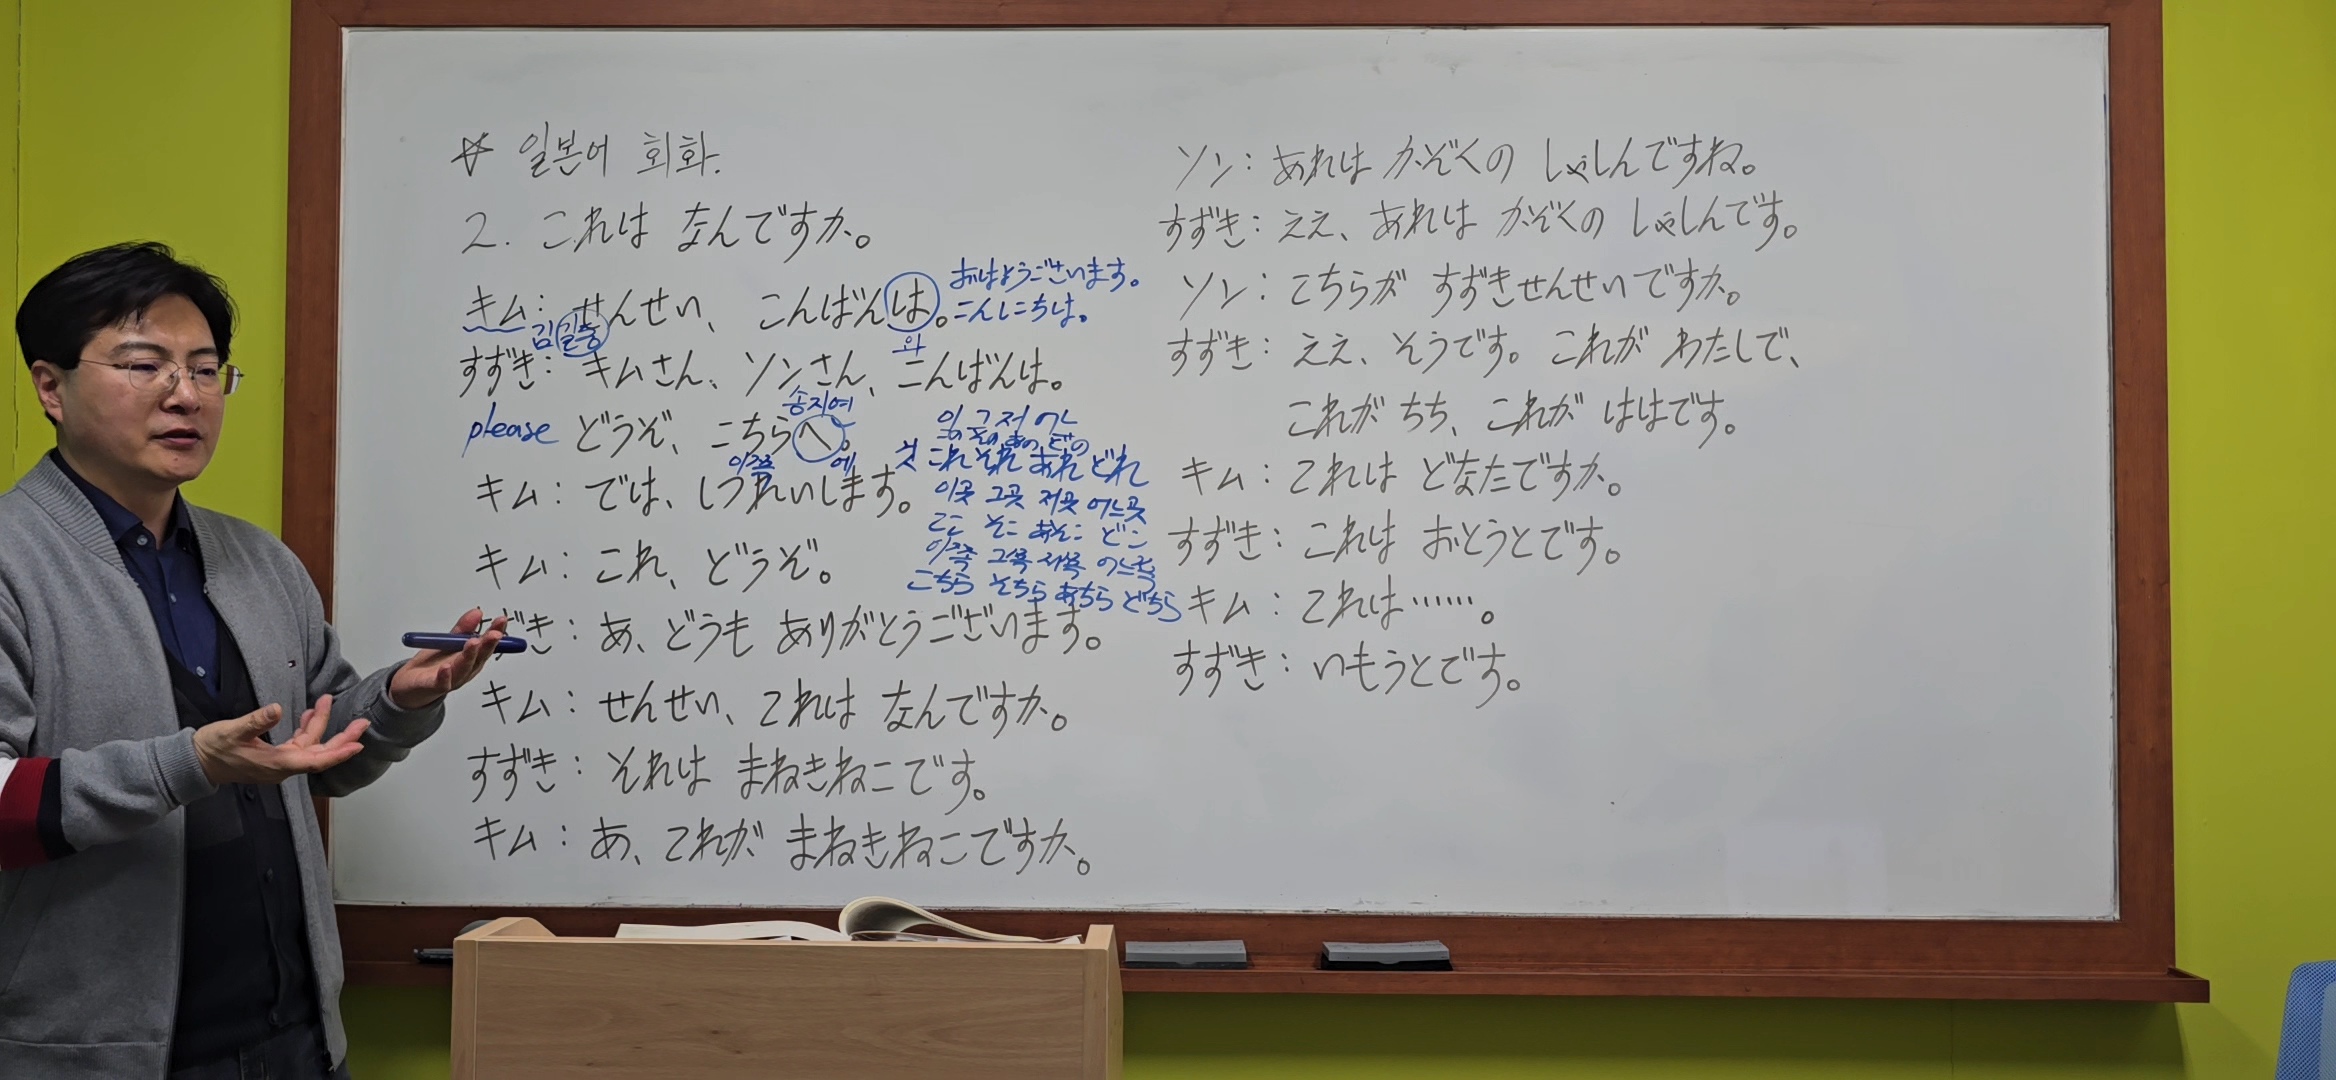 ☆ 일본어 회화.
2. これは なんですか。
キム: せんせい、 こんばんは。
おはようございます。
こんにちは。
김
와
すずき: キムさん、ソンさん、こんばんは。
송지연
please どうぞ、こちらへ。
이쪽 에
이 그 저 어느
この その あの どの
것 これ それ あれ どれ
이곳 그곳 저곳 어느곳
ここ そこ あそこ どこ
이쪽 그쪽 저쪽 어느쪽
こちら そちら あちら どちら
キム: では、しつれいします。
キム: これ、どうぞ。
ずき: あ、どうも ありがとうございます。
キム: せんせい、これは なんですか。
すずき: それは まねきねこです。
キム: あ、これが まねきねこですか。
ソン: あれは かぞくの しゃしんですね。
すずき: ええ、あれは かぞくの しゃしんです。
ソン: こちらが すずきせんせいですか。
すずき: ええ、そうです。これが わたしで、
これが ちち、これが ははです。
キム: これは どなたですか。
すずき: これは おとうとです。
キム: これは……。
すずき: いもうとです。